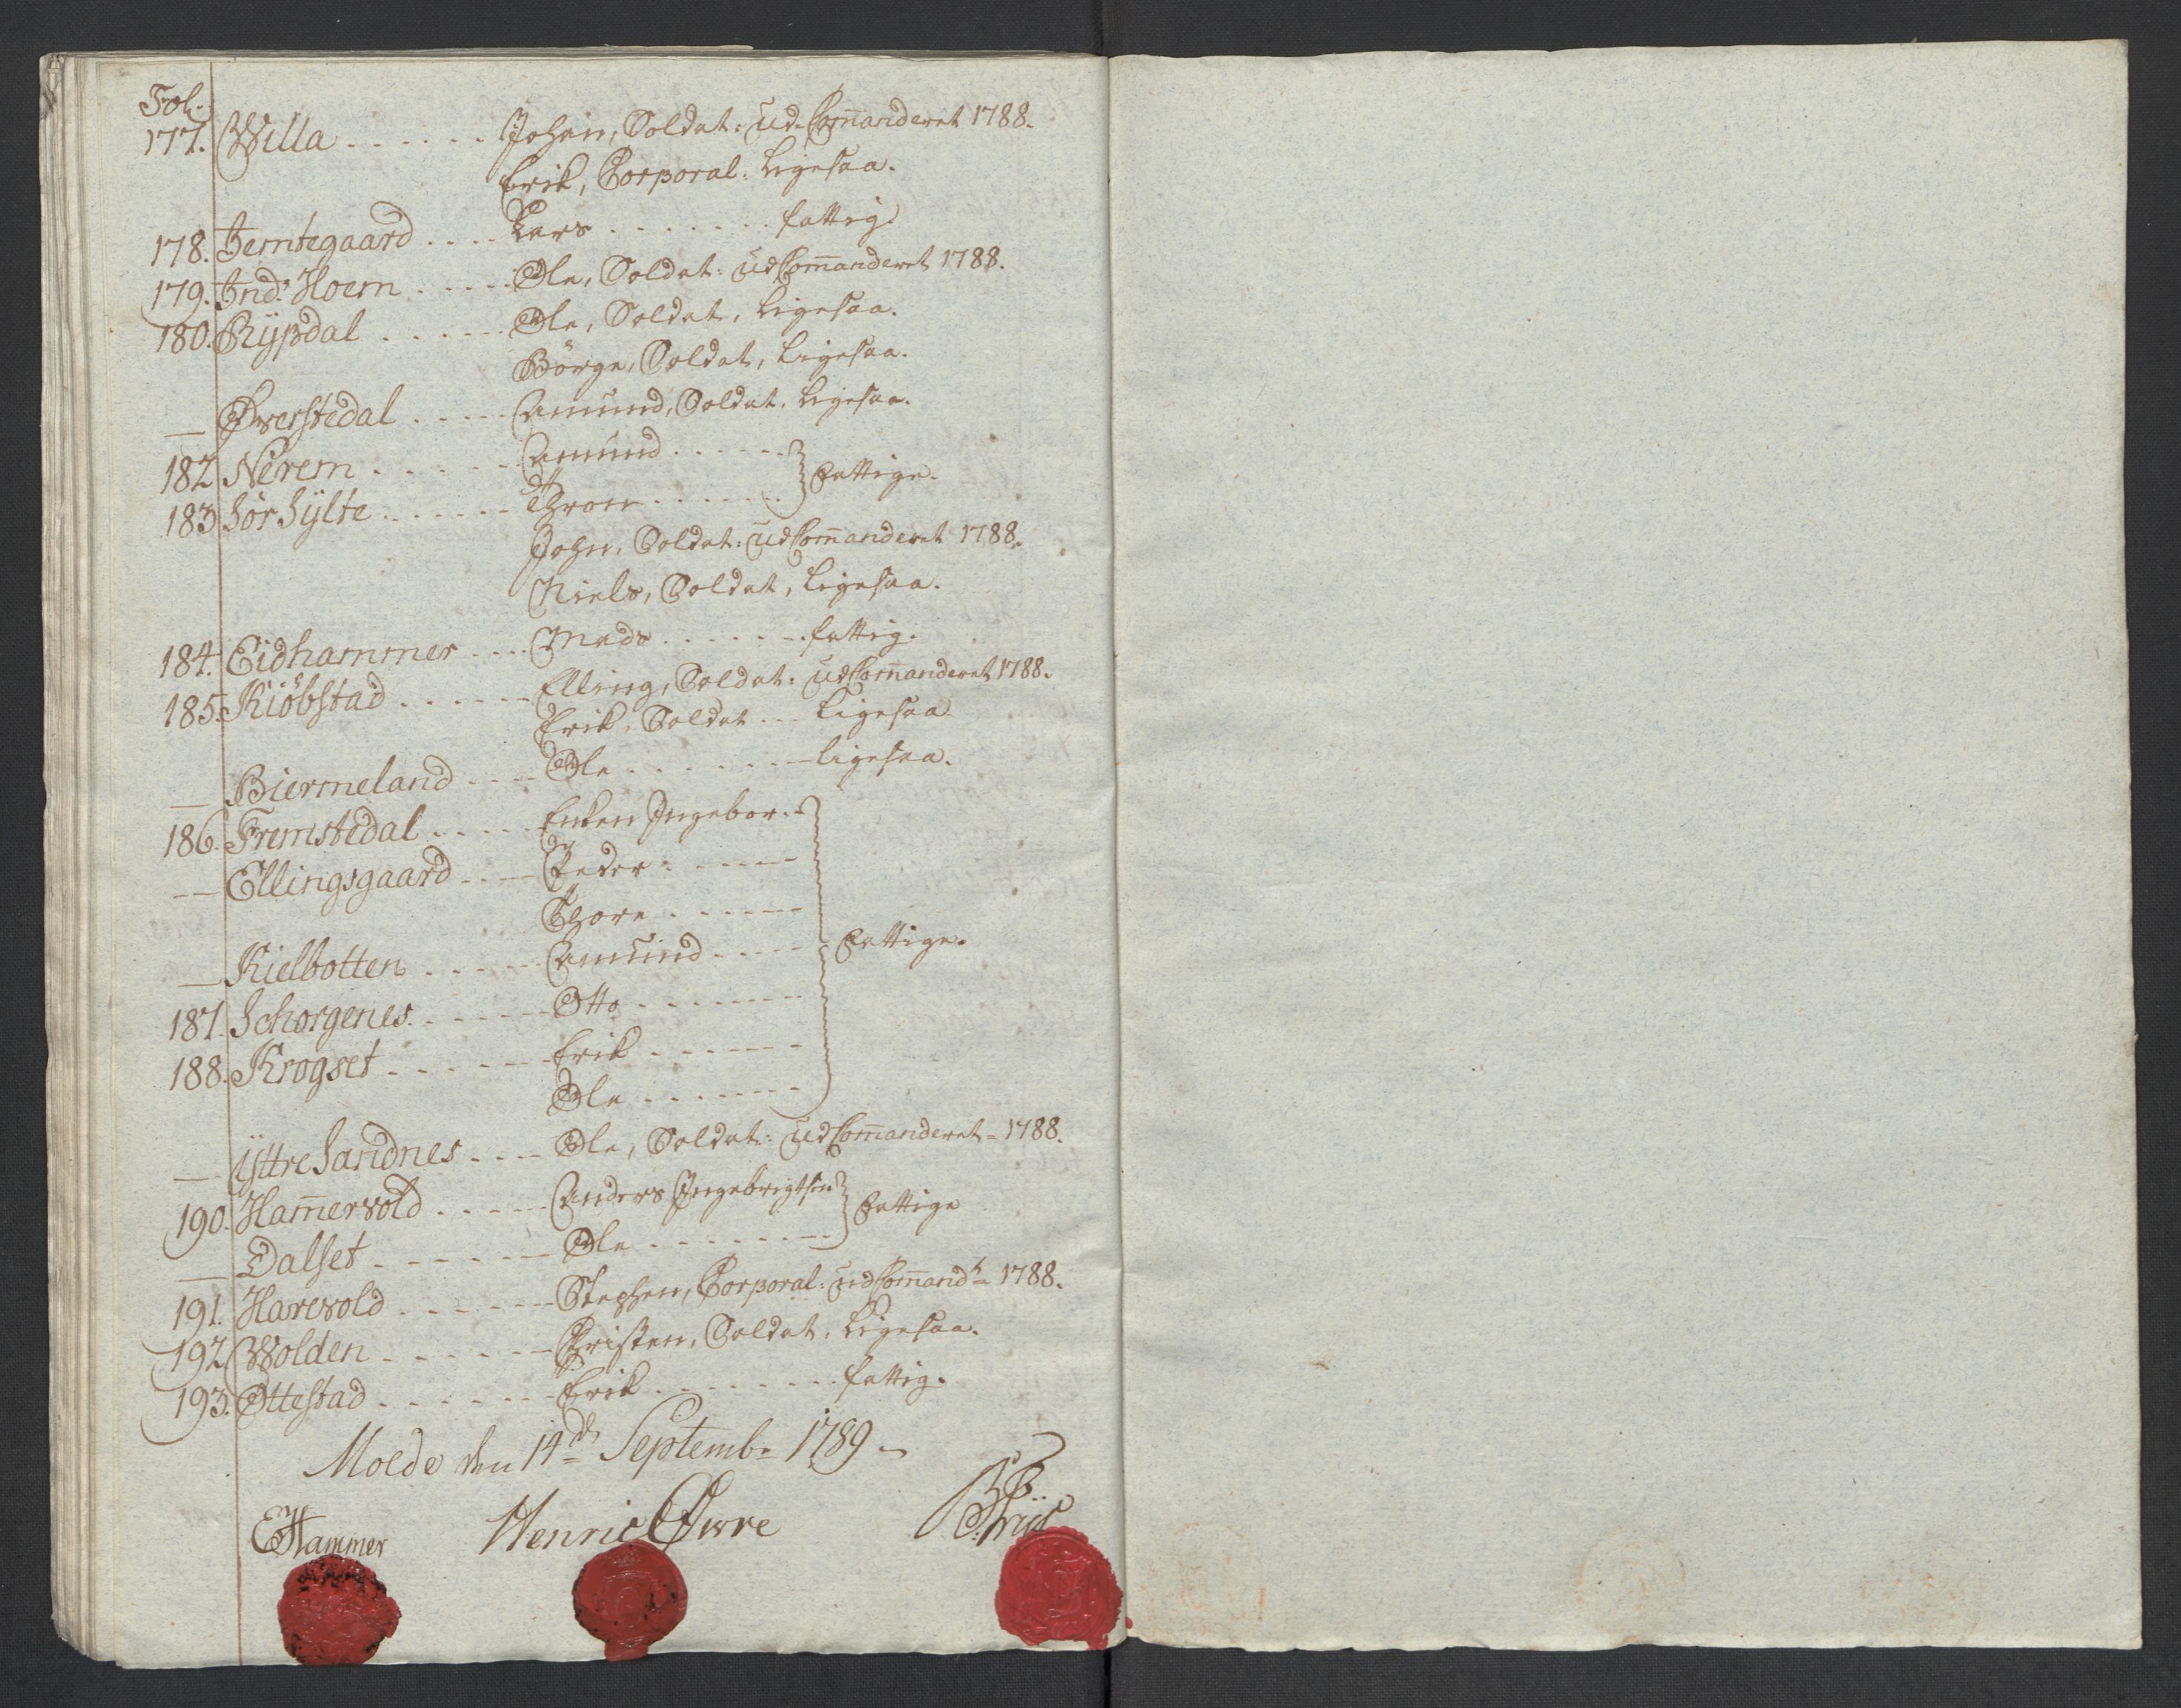 Fol.
177. Willa - - - - - - Johan, Soldat: ud-Com̄anderet 1788.
Erik, Corporal. ligesaa.
178. Jerntegaard - - - - Lars - - - - - - fattig.
179. Ind: Hoem - - - - - Ole, Soldat: udCom̄anderet 1788.
180. Rypdal - - - - - Ole, Soldat, ligesaa.
Börge, Soldat, ligesaa.
— Øverstedal - - - - Amund, Soldat. ligesaa.
182 Nerem - - - - - - Amund - - - - - -
183 Sør Sÿlte - - - - - - Thron - - - - - - fattige.
John, Soldat: udCom̄anderet 1788.
Niels, Soldat, ligesaa.
184. Eidhammer - - - Mads - - - - - - fattig.
185. Kiöbstad - - - - - Elling, Soldat: udCom̄anderet 1788.
Erik, Soldat - - - ligesaa
— Biermeland - - - - Ole - - - - - - - ligesaa.
186. Fremstedal - - - - Enken Ingebor. -
— Ellingsgaard - - - Peder - - - - - -
Thore - - - - - -
— Kielbotten - - - - - Amund - - - - fattige.
187. Schorgenes - - - - - Otto - - - - - - -
188. Krogset - - - - - Erik - - - - - -
Ole - - - - - - -
— Ÿttre Sandnes - - - - Ole, Soldat: udCom̄anderet - 1788.
190. Ham̄ervold - - - - - Anders Ingebrigtsen
— Dalset - - - - - - Ole - - - - - - - - fattige
191. Harevold - - - - - - Stephen, Corporal: udCom̄andt 1788.
192 Wolden - - - - - - Christen, Soldat, ligesaa.
193. Ottestad - - - - - - Erik - - - - - - - fattig.
Molde den 14de Septembr 1789 -
EHammer Henric Øwre